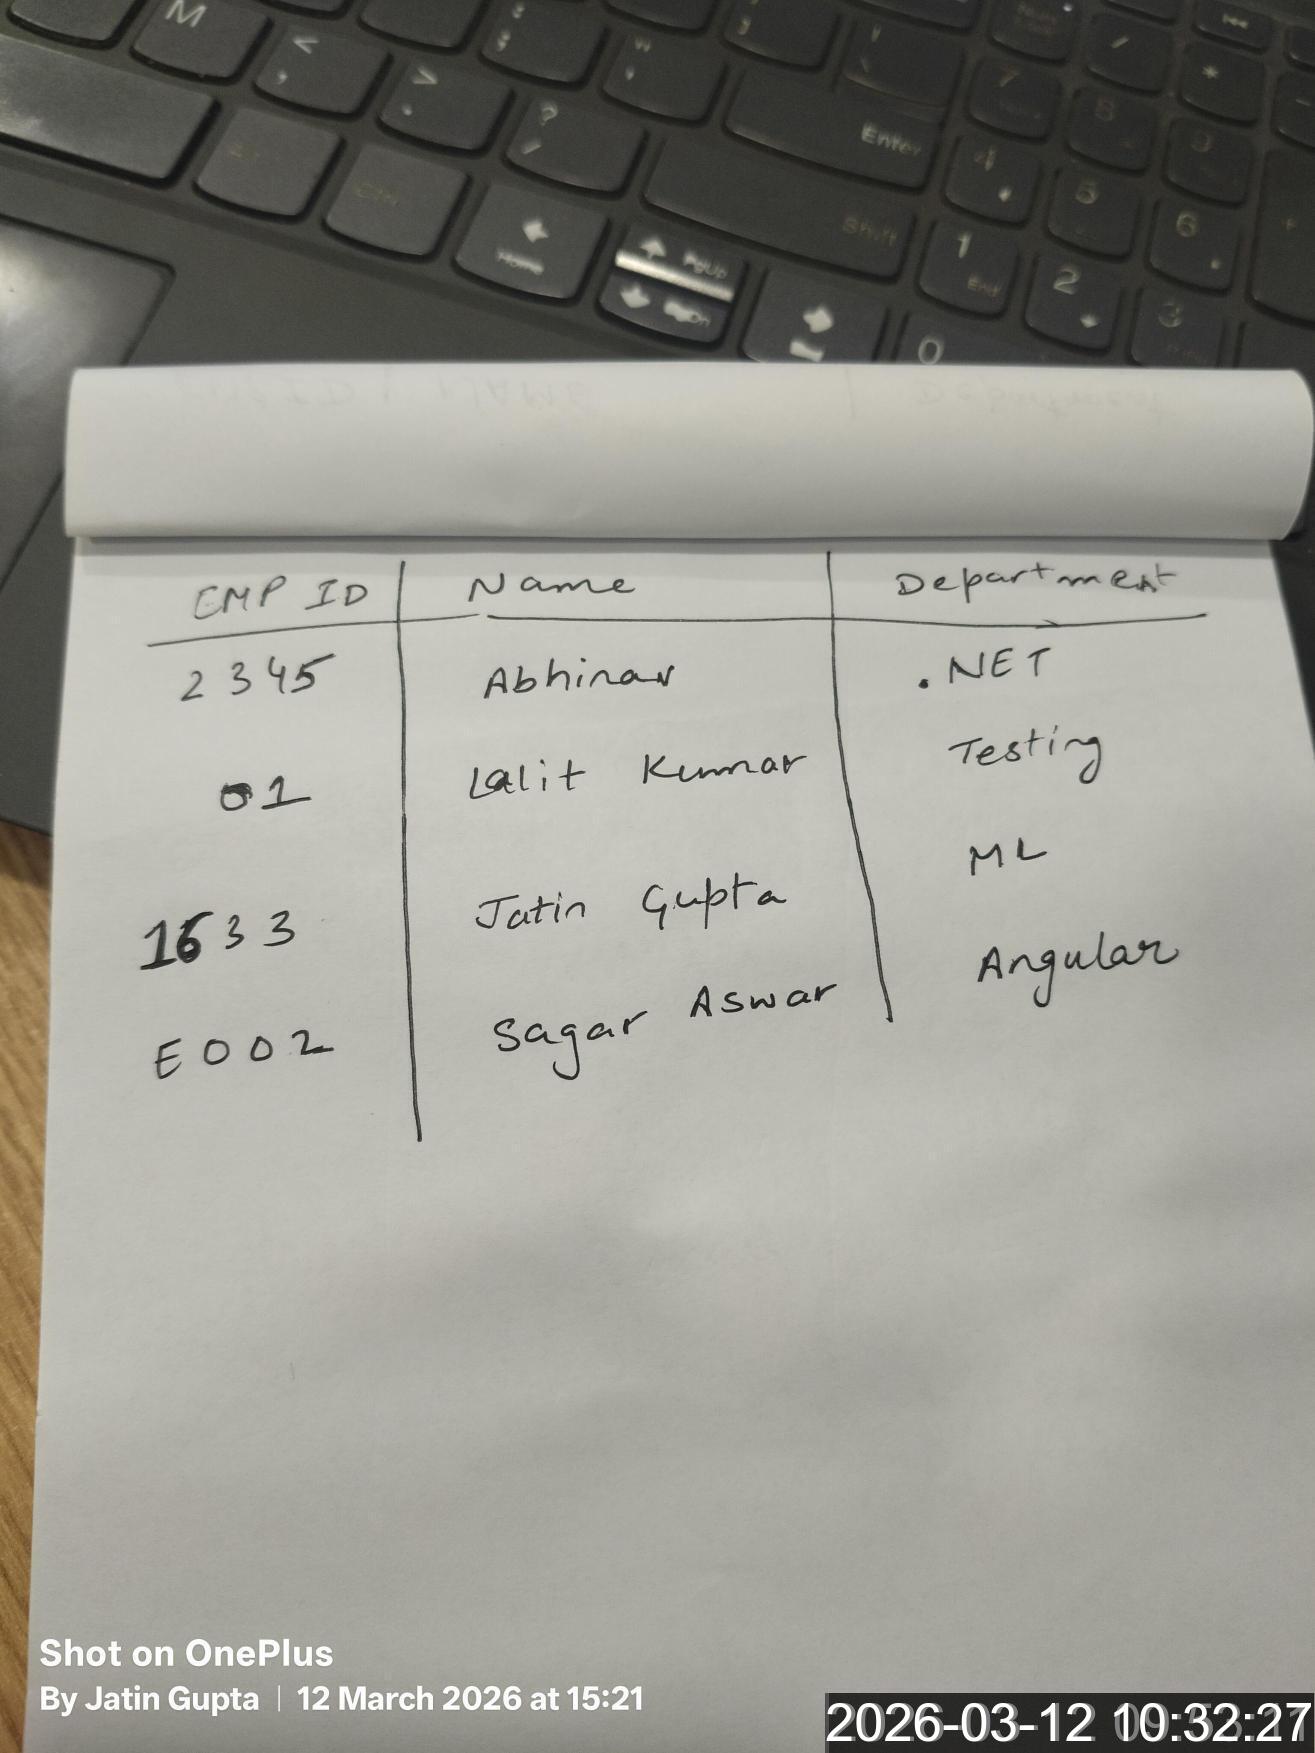 M
Enter
Shift
Home
PgUp
1 End
2
3
4
5
6
7
8
9
0
EMP ID Name Department
2345 Abhinav .NET
01 Lalit Kumar Testing
1633 Jatin Gupta ML
E002 Sagar Aswar Angular
Shot on OnePlus
By Jatin Gupta | 12 March 2026 at 15:21
2026-03-12 10:32:27